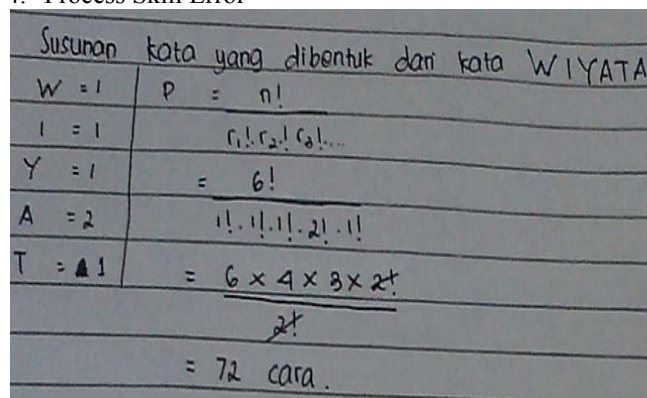 4. Process Skill Error
Susunan kata yang dibentuk dari kata WIYATA
W = 1 P = n!
r₁!.r₂!.r₃!...
I = 1
Y = 1 = 6!
A = 2 1!.1!.1!.2!.1!
T = 1 = 6 × 4 × 3 × 2!
2!
= 72 cara.